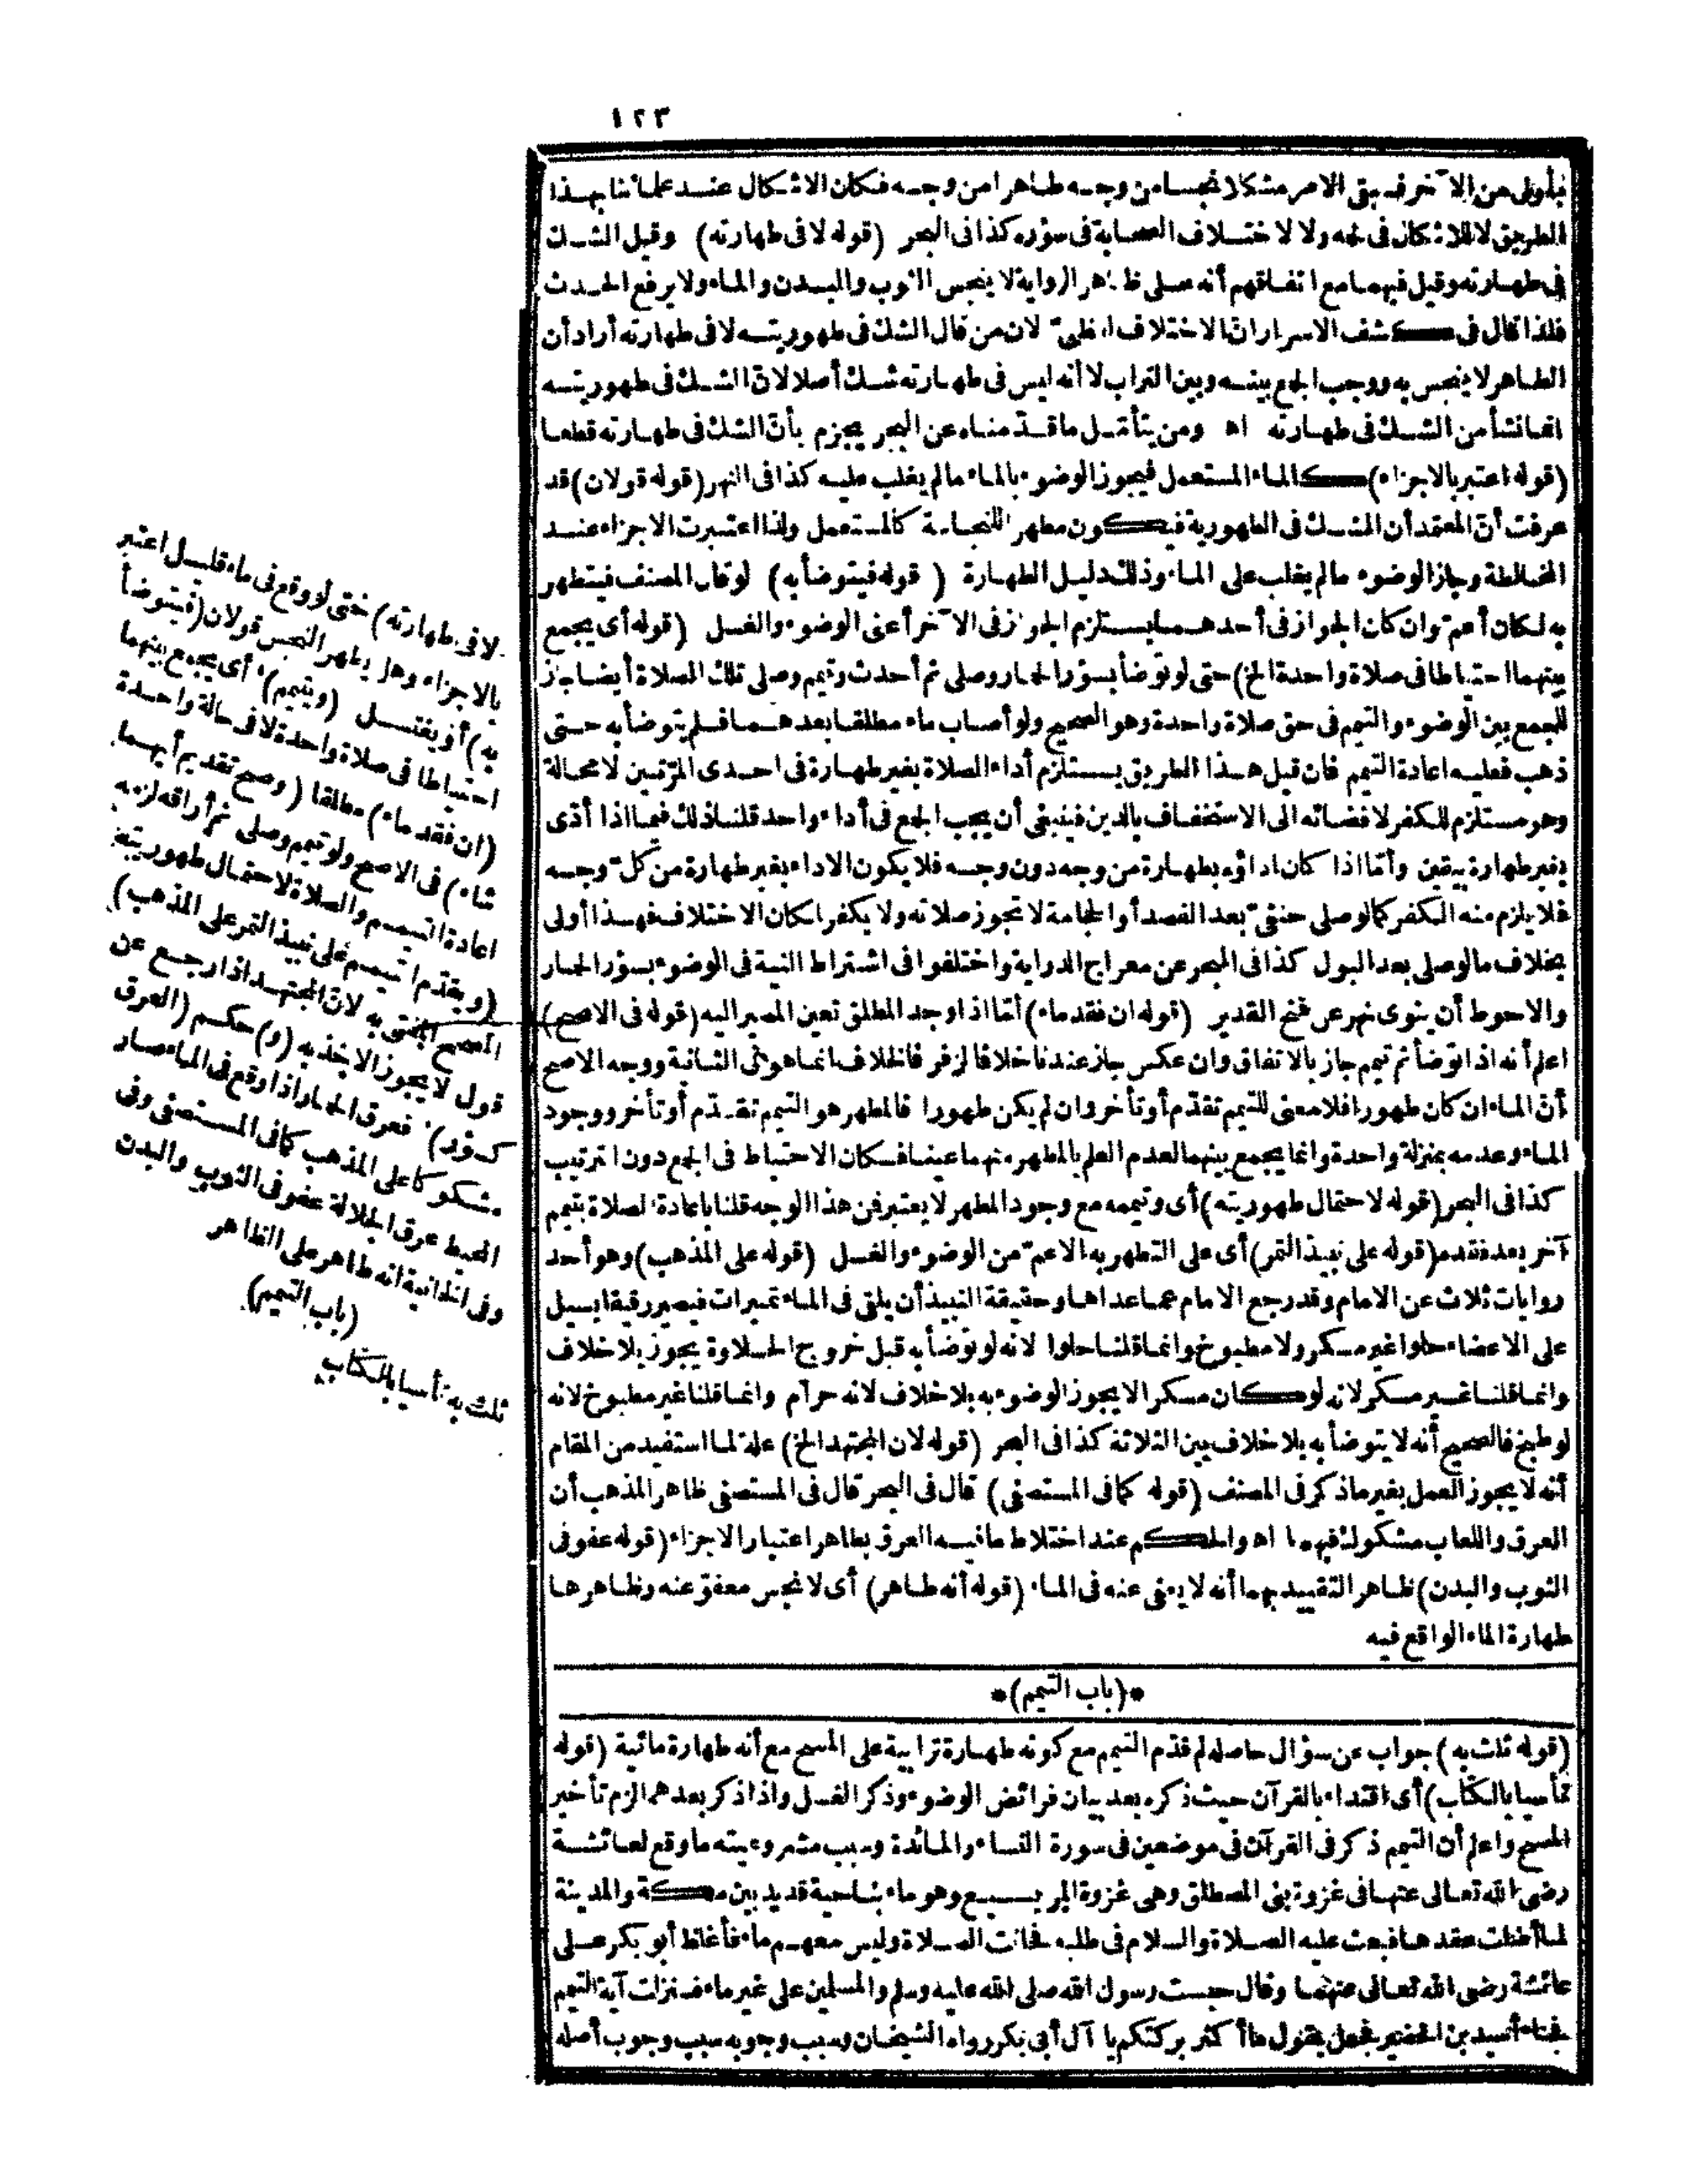 ١٢٣
بأولى من الآخر فيبقى الامر مشكلا نجسا من وجه طاهرا من وجه فكان الاشكال عند علمائنا بهذا
الطريق لا للاشكال فى لحمه ولا لاختلاف الصحابة فى سؤره كذا فى البحر (قوله لا فى طهارته) وقيل الشك
فى طهارته وقيل فيهما مع اتفاقهم أنه على ظاهر الرواية لا ينجس الثوب والبدن والماء ولا يرفع الحدث
فلذا قال فى كشف الاسرار ان الاختلاف لفظى لان من قال الشك فى طهوريته لا فى طهارته أراد أن
الطاهر لا ينجس به ووجب الجمع بينه وبين التراب لا أنه ليس فى طهارته شك أصلا لان الشك فى طهوريته
انما نشأ من الشك فى طهارته اه ومن يتأمل ما قدّمناه عن البحر يجزم بأنّ الشك فى طهارته قطعا
(قوله اعتبر بالاجزاء) كالماء المستعمل فيجوز الوضوء بالماء ما لم يغلب عليه كذا فى النهر (قوله قولان) قد
عرفت أنّ المعتمد أن الشك فى الطهورية فيكون مطهرا للنجاسة كالمستعمل ولذا اعتبرت الاجزاء عند
المخالطة وجاز الوضوء ما لم يغلب على الماء وذلك دليل الطهارة (قوله فيتوضأ به) لو قال المصنف فيتطهر
به لكان أعم وان كان الجواز فى أحدهما يستلزم الجواز فى الآخر أعنى الوضوء والغسل (قوله أى يجمع
بينهما احتياطا فى صلاة واحدة الخ) حتى لو توضأ بسؤر الحمار وصلى ثم أحدث وتيمم وصلى تلك الصلاة أيضا جاز
للجمع بين الوضوء والتيمم فى حق صلاة واحدة وهو الصحيح ولو أصاب ماء مطلقا بعدهما فلم يتوضأ به حتى
ذهب فعليه اعادة التيمم فان قيل هذا الطريق يستلزم أداء الصلاة بغير طهارة فى احدى المرّتين لا محالة
وهو مستلزم للكفر لافضائه الى الاستخفاف بالدين فينبغى أن يجب الجمع فى أداء واحد قلنا ذلك فيما اذا أدّى
بغير طهارة بيقين وأمّا اذا كان اداؤه بطهارة من وجه دون وجه فلا يكون الاداء بغير طهارة من كلّ وجه
فلا يلزم منه الكفر كما لو صلى حنفىّ بعد الفصد أو الحجامة لا تجوز صلاته ولا يكفر لمكان الاختلاف فهذا أولى
بخلاف ما لو صلى بعد البول كذا فى البحر عن معراج الدراية واختلفوا فى اشتراط النية فى الوضوء بسؤر الحمار
والاحوط أن ينوى نهر عن فتح القدير (قوله ان فقد ماء) أمّا اذا وجد المطلق تعين المصير اليه (قوله فى الاصح)
اعلم أنه اذا توضأ ثم تيمم جاز بالاتفاق وان عكس جاز عندنا خلافا لزفر فالخلاف انما هو فى الثانية ووجه الاصح
أنّ الماء ان كان طهورا فلا معنى للتيمم تقدّم أو تأخر وان لم يكن طهورا فالمطهر هو التيمم تقدّم أو تأخر ووجود
الماء وعدمه بمنزلة واحدة وانما يجمع بينهما لعدم العلم بالمطهر منهما عينا فكان الاحتياط فى الجمع دون الترتيب
كذا فى البحر (قوله لاحتمال طهوريته) أى وتيممه مع وجود المطهر لا يعتبر فمن هذا الوجه قلنا باعادة الصلاة بتيمم
آخر بعد فقده (قوله على نبيذ التمر) أى على التطهر به الاعمّ من الوضوء والغسل (قوله على المذهب) وهو أحد
روايات ثلاث عن الامام وقد رجع الامام عما عداها وحقيقة النبيذ أن يلقى فى الماء تميرات فيصير رقيقا يسيل
على الاعضاء حلوا غير مسكر ولا مطبوخ وانما قلنا حلوا لانه لو توضأ به قبل خروج الحلاوة يجوز بلا خلاف
وانما قلنا غير مسكر لانه لو كان مسكرا لا يجوز الوضوء به بلا خلاف لانه حرام وانما قلنا غير مطبوخ لانه
لو طبخ فالصحيح أنه لا يتوضأ به بلا خلاف بين الثلاثة كذا فى البحر (قوله لان المجتهد الخ) علة لما استفيد من المقام
أنه لا يجوز العمل بغير ما ذكر فى المصنف (قوله كما فى المستصفى) قال فى البحر قال فى المستصفى ظاهر المذهب أن
العرق واللعاب مشكوك فيهما اه والحكم عند اختلاط ما فيه العرق بطاهر اعتبار الاجزاء (قوله عفو فى
الثوب والبدن) ظاهر التقييد بهما أنه لا يعفى عنه فى الماء (قوله أنه طاهر) أى لا نجس معفوّ عنه وظاهرها
طهارة الماء الواقع فيه
*(باب التيمم)*
(قوله ثلث به) جواب عن سؤال حاصله لم قدّم التيمم مع كونه طهارة ترابية على المسح مع أنه طهارة مائية (قوله
تأسيا بالكتاب) أى اقتداء بالقرآن حيث ذكره بعد بيان فرائض الوضوء وذكر الغسل واذا ذكر بعدهما لزم تأخير
المسح واعلم أن التيمم ذكر فى القرآن فى موضعين فى سورة النساء والمائدة وسبب مشروعيته ما وقع لعائشة
رضى الله تعالى عنها فى غزوة بنى المصطلق وهى غزوة المريسيع وهو ماء بناحية قديد بين مكة والمدينة
لما أضلت عقدها فبعث عليه الصلاة والسلام فى طلبه فحانت الصلاة وليس معهم ماء فأغلظ أبو بكر على
عائشة رضى الله تعالى عنهما وقال حبست رسول الله صلى الله عليه وسلم والمسلمين على غير ماء فنزلت آية التيمم
فجاء أسيد بن الحضير فجعل يقول ما أكثر بركتكم يا آل أبى بكر رواه الشيخان وسبب وجوبه سبب وجوب أصله
لا فى طهارته) حتى لو وقع فى ماء قليل اعتبر
بالاجزاء وهل يطهر النجس قولان (فيتوضأ
به) أو يغتسل (ويتيمم) أى يجمع بينهما
احتياطا فى صلاة واحدة لا فى حالة واحدة
(ان فقد ماء) مطلقا (وصح تقديم أيهما
شاء) فى الاصح ولو تيمم وصلى ثم أراقه لزمه
اعادة التيمم والصلاة لاحتمال طهوريته
(ويقدّم التيمم على نبيذ التمر على المذهب)
المصحح المفتى به لانّ المجتهد اذا رجع عن
قول لا يجوز الاخذ به (و) حكم (العرق
كسؤر) فعرق الحمار اذا وقع فى الماء صار
مشكوكا على المذهب كما فى المستصفى وفى
المحيط عرق الجلالة عفو فى الثوب والبدن
وفى الخانية انه طاهر على الظاهر
(باب التيمم)
ثلث به تأسيا بالكتاب